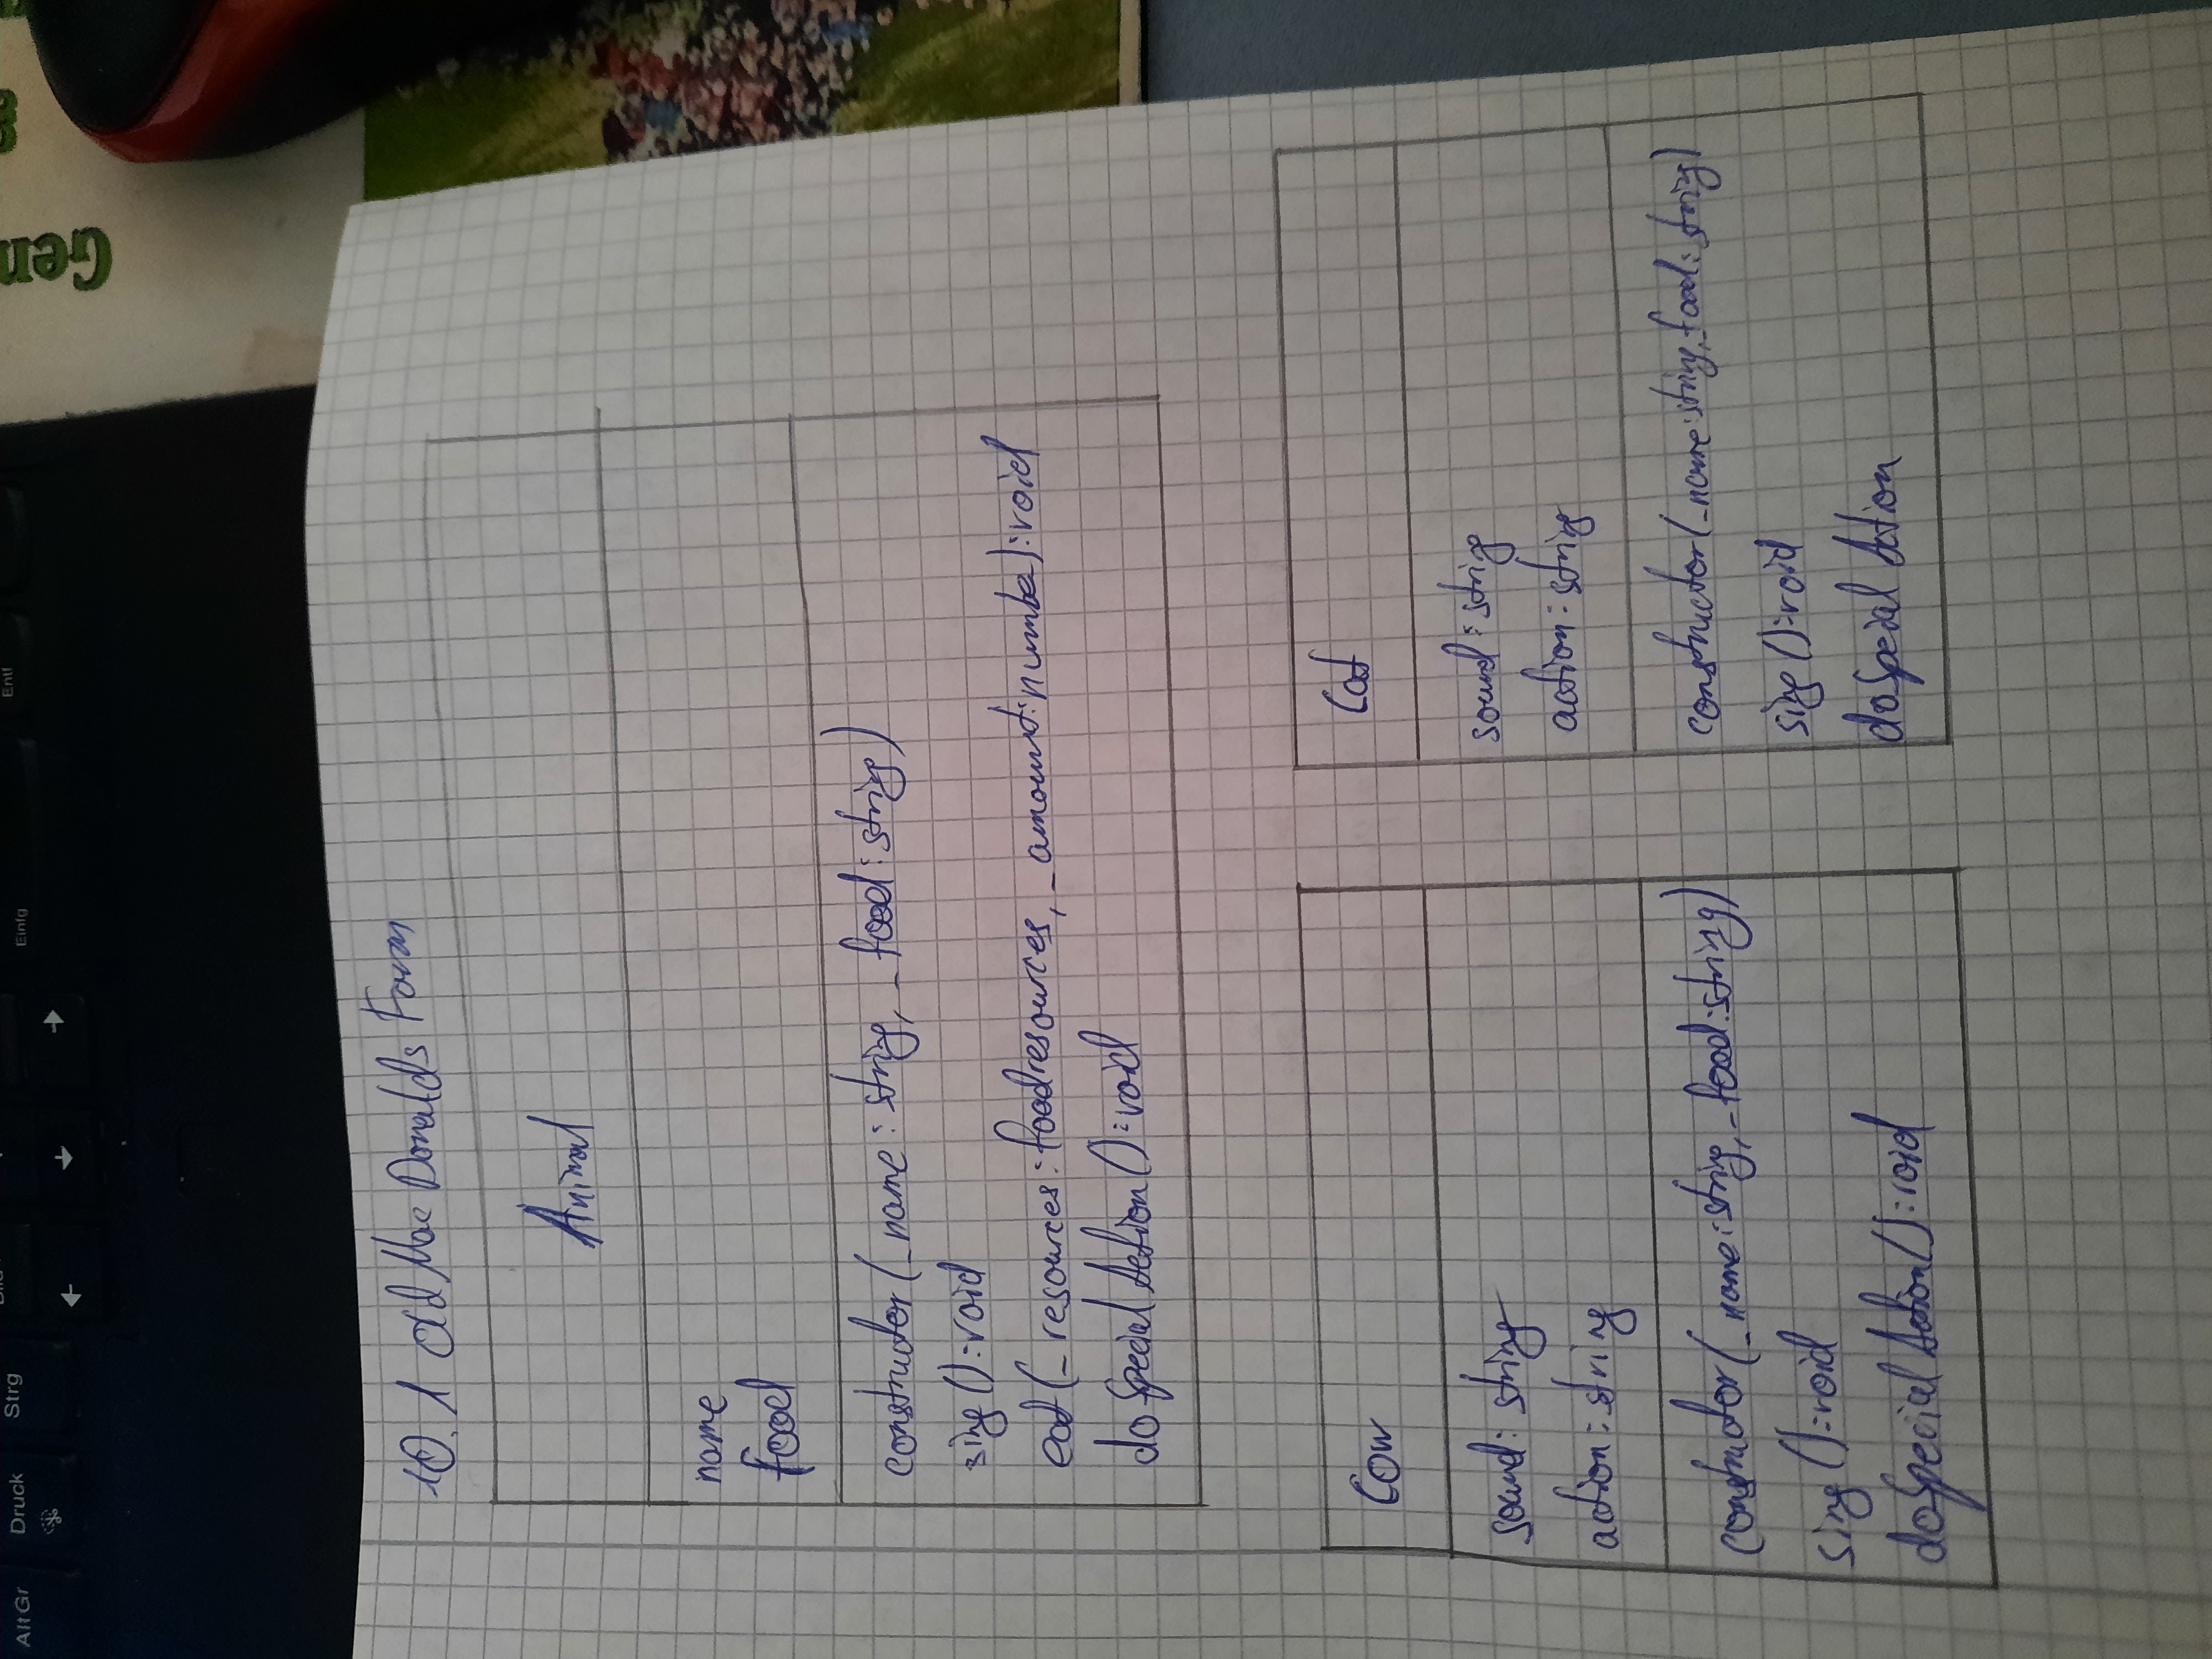 AltGr
Druck
Strg
Einfg
Entf
Gen
10.1 Old Mac Donalds Farm
Animal
name
food
constructor(_name:string, _food:string)
sing():void
eat(_resources:foodresources, _amount:number):void
doSpecialAction():void
Cow
sound: string
action: string
constructor(_name:string, _food:string)
sing():void
doSpecialAction():void
Cat
sound: string
action: string
constructor(_name:string,_food:string)
sing():void
doSpecialAction